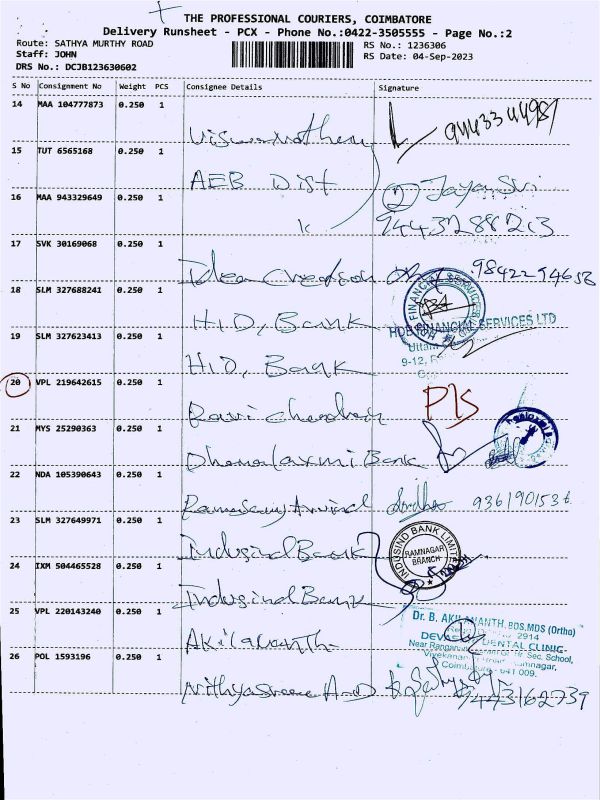 THE PROFESSIONAL COURIERS, COIMBATORE
Delivery Runsheet - PCX - Phone No.:0422-3505555 - Page No.:2
Route: SATHYA MURTHY ROAD RS No.: 1236306
Staff: JOHN RS Date: 04-Sep-2023
DRS No.: DCJB123630602
S No Consignment No Weight PCS Consignee Details Signature
14 MAA 104777873 0.250 1
15 TUT 6565168 0.250 1 AEB Dist
16 MAA 943329649 0.250 1 9443288213
17 SVK 30169068 0.250 1 Idea Creation 9842294658
18 SLM 327688241 0.250 1 H.D, Bank
HDB FINANCIAL SERVICES LTD
19 SLM 327623413 0.250 1 H.D, Bank
20 VPL 219642615 0.250 1 Ravi chandran
21 MYS 25290363 0.250 1 Dhanalaxmi Bank
22 NDA 105390643 0.250 1 Ramasamy Arvind
23 SLM 327649971 0.250 1 Indusind Bank
INDUSIND BANK LIMITED
RAMNAGAR
BRANCH
24 IXM 504465528 0.250 1 Indusind Bank
25 VPL 220143240 0.250 1 Akilananth
Dr. B. AKILANANTH, BDS,MDS (Ortho)
2914
DENTAL CLINIC
Sec. School,
Coimbatore - 641 009.
26 POL 1593196 0.250 1 Nithyasree And 9443162739